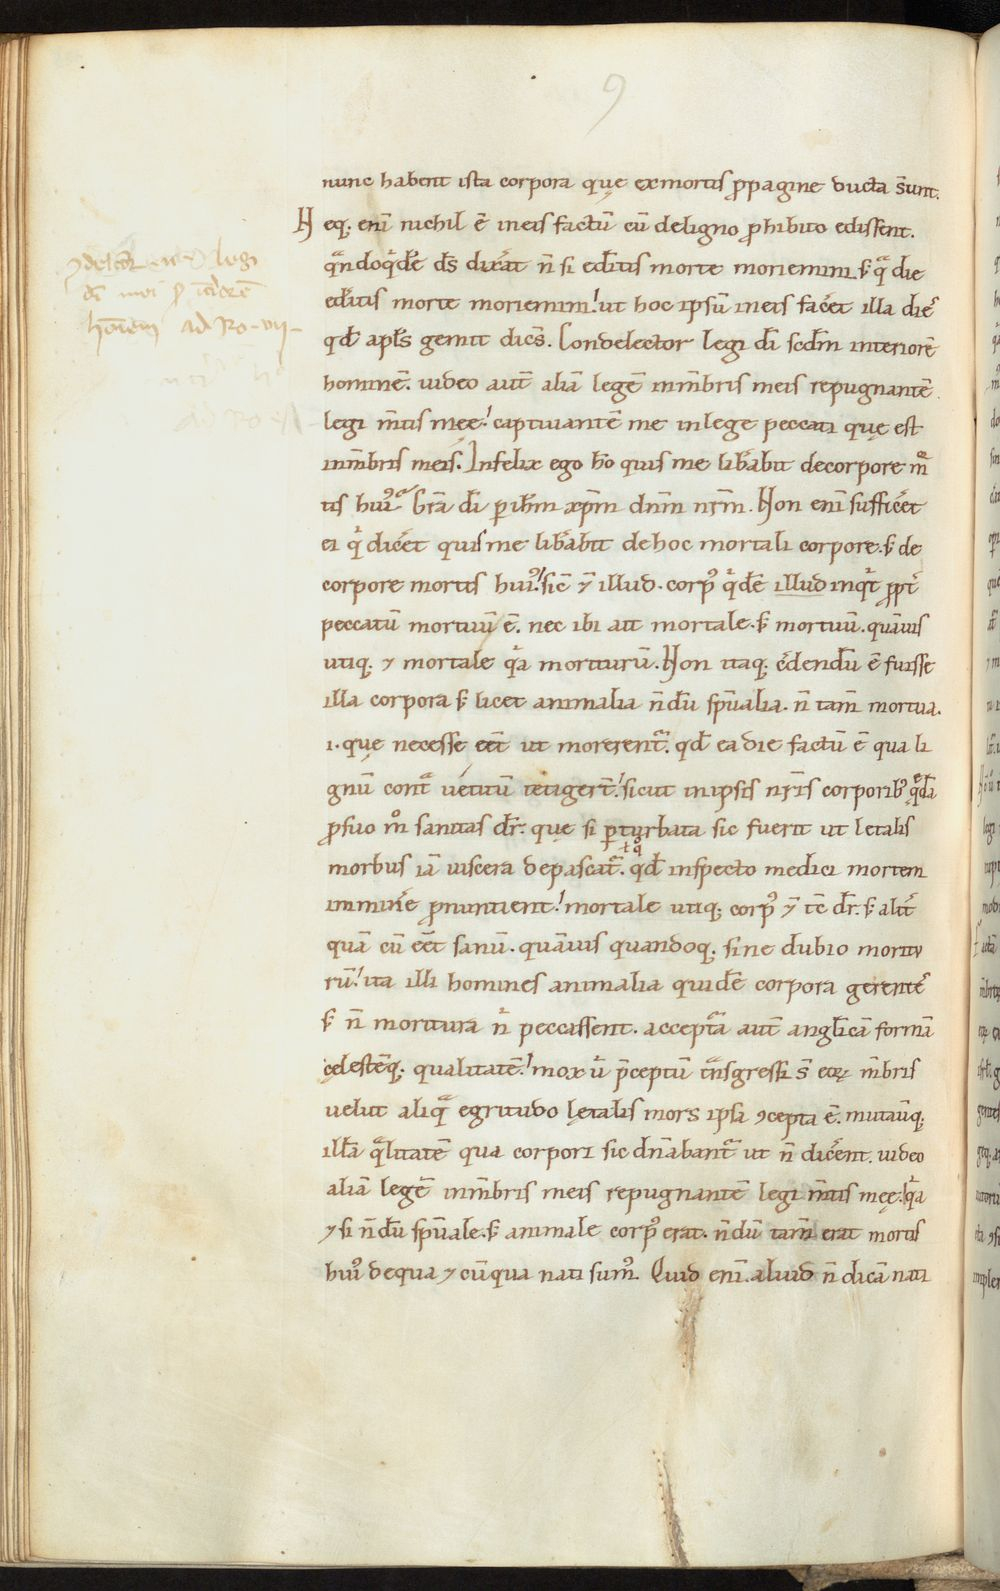 9
nunc habent ista corpora quę exmortis ꝓpagine ducta sunt.
Neq; eni͂ nichil ē ineis factū cū deligno ꝓhibito edissent.
qͣndoqͥdē dˢ dixat n̄ si edˡitis morte moriemini. sꝫ qͣ die
edˡitis morte moriemini! ut hoc ipsū ineis facˡet illa dieˢ
qđ aplˢ gemit dicˢ. Condelector legi dī scdm̄ interiorē
hominē. uideo aut̄ aliā legē inm̄bris meis repugnantē
⁊delectˀ legi
legi m̄tis męę! captiuantē me inlege peccati quę est
dī
inm̄bris meis. Infelix ego hō quis me libˡabit decorpore mͦ
hōīem ad Ro-vii-
tis huiꝰ? Grā dī ꝑ ihm̄ xp̄m dnm̄ nrm̄. Non eni͂ sufficˡet
ei qͥ dicˡet quisme libˡabit dehoc mortali corpore. sꝫ de
corpore mortis huiꝰ! sic̄ ⁊ illud. corpꝰ qͥdē illud inqͥt ꝓpt̄
peccatū mortuū ē. nec ibi ait mortale. sꝫ mortuū. quāuis
utiq; ⁊ mortale qͥa moriturū. Non itaq; cˡedendū ē fuisse
illa corpora sꝫ licet animalia n̄dū sp̄ualia. n̄ tam̄ mortua.
.i. que necesse eēt ut morerentˀ. qđ ea die factū ē qua li
gnū contͣ uetitū tetigert̄! sicut inipsis nr̄is corporibꝰ qͣdā
ꝓsuo mͦ sanitas dr̄. quę si ꝑturbata sic fuerit ut letalis
morbus iā uiscera depascatˀ. qđ inspecto medici mortem
imminˡe ꝓnuntient! mortale utiq; corpꝰ ⁊ tc̄ dr̄. sꝫ alit̄
quā cū eēt sanū. quāuis quandoq; sine dubio moritu
rū! ita illi homines animalia quidē corpora gerentˢ
sꝫ n̄ moritura nͥ peccassent. acceptͣa aut̄ angl̄icā formā
cęlestēq; qualitatē! mox uͦ p̄ceptū tͣnsgressi s̄ eoꝝ m̄bris
uelut aliqͣ egritudo lętalis mors ipsa ꝯcepta ē. mutauitq;
illā qͣlitatē qua corpori sic dn̄abantˀ ut n̄ dicˡent. uideo
aliā legē inm̄bris meis repugnantē legi m̄tis męę! qͥa
⁊ si n̄dū sp̄uale. sꝫ animale corpꝰ erat. n̄dū tam̄ erat mortis
huiꝰ dequa ⁊ cūqua nati sumꝰ. Quid eni͂. aliud n̄ dicā nati